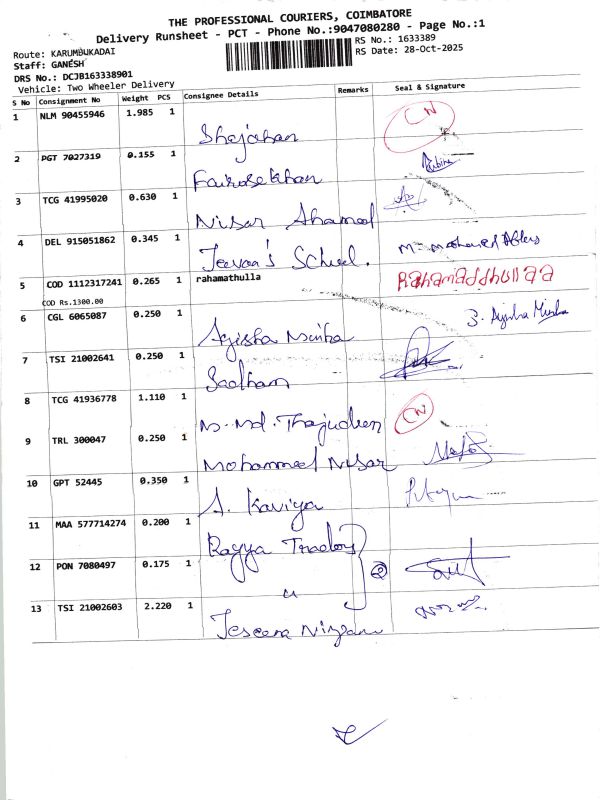 THE PROFESSIONAL COURIERS, COIMBATORE
Delivery Runsheet - PCT - Phone No.:9047080280 - Page No.:1
Route: KARUMBUKADAI
RS No.: 1633389
Staff: GANESH
RS Date: 28-Oct-2025
DRS No.: DCJB163338901
Vehicle: Two Wheeler Delivery
S No Consignment No Weight PCS Consignee Details Remarks Seal & Signature
1 NLM 90455946 1.985 1 Shajahan CN
2 PGT 7027319 0.155 1 Fairose khan
3 TCG 41995020 0.630 1 Nisar Ahamed
4 DEL 915051862 0.345 1 Jeevaa's School. M. Mohamed
5 COD 1112317241 0.265 1 rahamathulla Rahamaddhullaa
COD Rs.1300.00
6 CGL 6065087 0.250 1 Ayisha
7 TSI 21002641 0.250 1 Sadham
8 TCG 41936778 1.110 1 M. Md. Thajudeen CN
9 TRL 300047 0.250 1 Mohammed Nisar
10 GPT 52445 0.350 1 A. Kaviya
11 MAA 577714274 0.200 1 Rayya Traders
12 PON 7080497 0.175 1 " 2
13 TSI 21002603 2.220 1 Jeseera Nizam